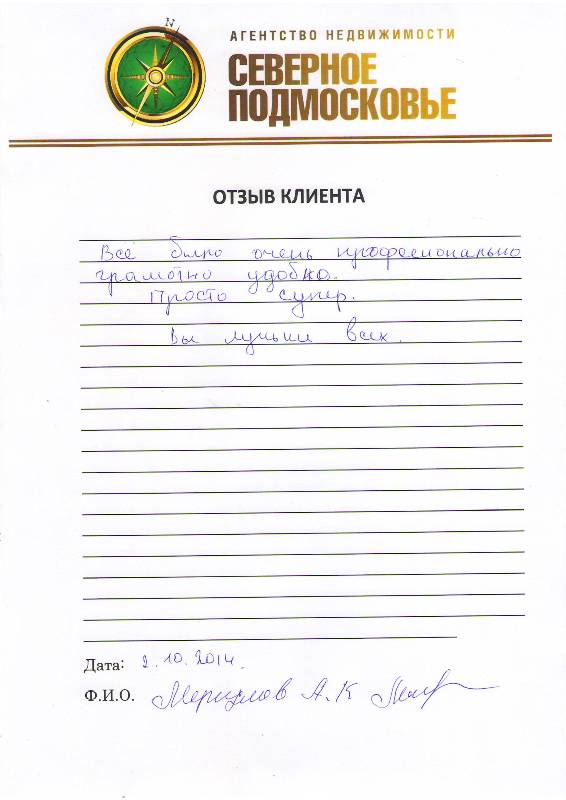 N
АГЕНТСТВО НЕДВИЖИМОСТИ
СЕВЕРНОЕ
ПОДМОСКОВЬЕ
ОТЗЫВ КЛИЕНТА
Всё было очень професионально
грамотно удобно.
Просто супер.
Вы лучьши всех.
Дата: 2.10.2014.
Ф.И.О. А.К